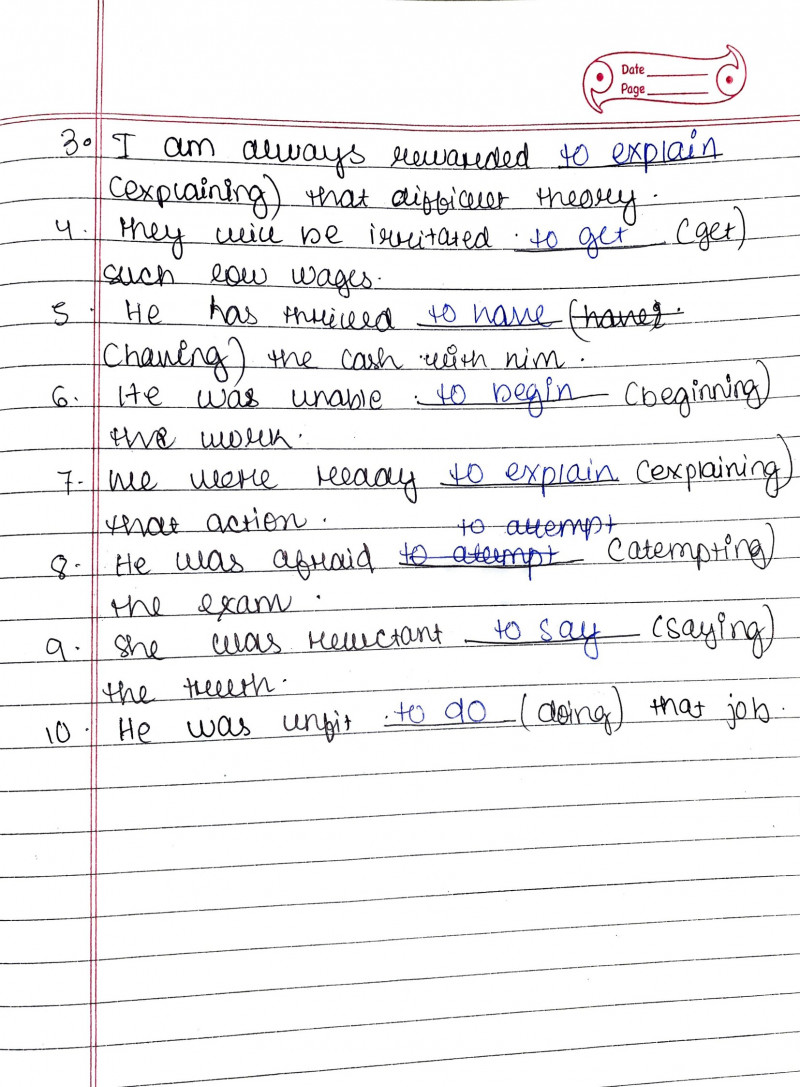 Date
Page
3. I am always rewarded to explain
(explaining) that difficult theory.
4. they will be irritated to get (get)
such low wages.
5. He has thrilled to have (have).
(having) the cash with him.
6. He was unable to begin (beginning)
the work.
7. We were ready to explain (explaining)
that action.
to attempt
8. He was afraid to atempt (atempting)
the exam.
9. She was reluctant to say (saying)
the truth.
10. He was unfit to do (doing) that job.